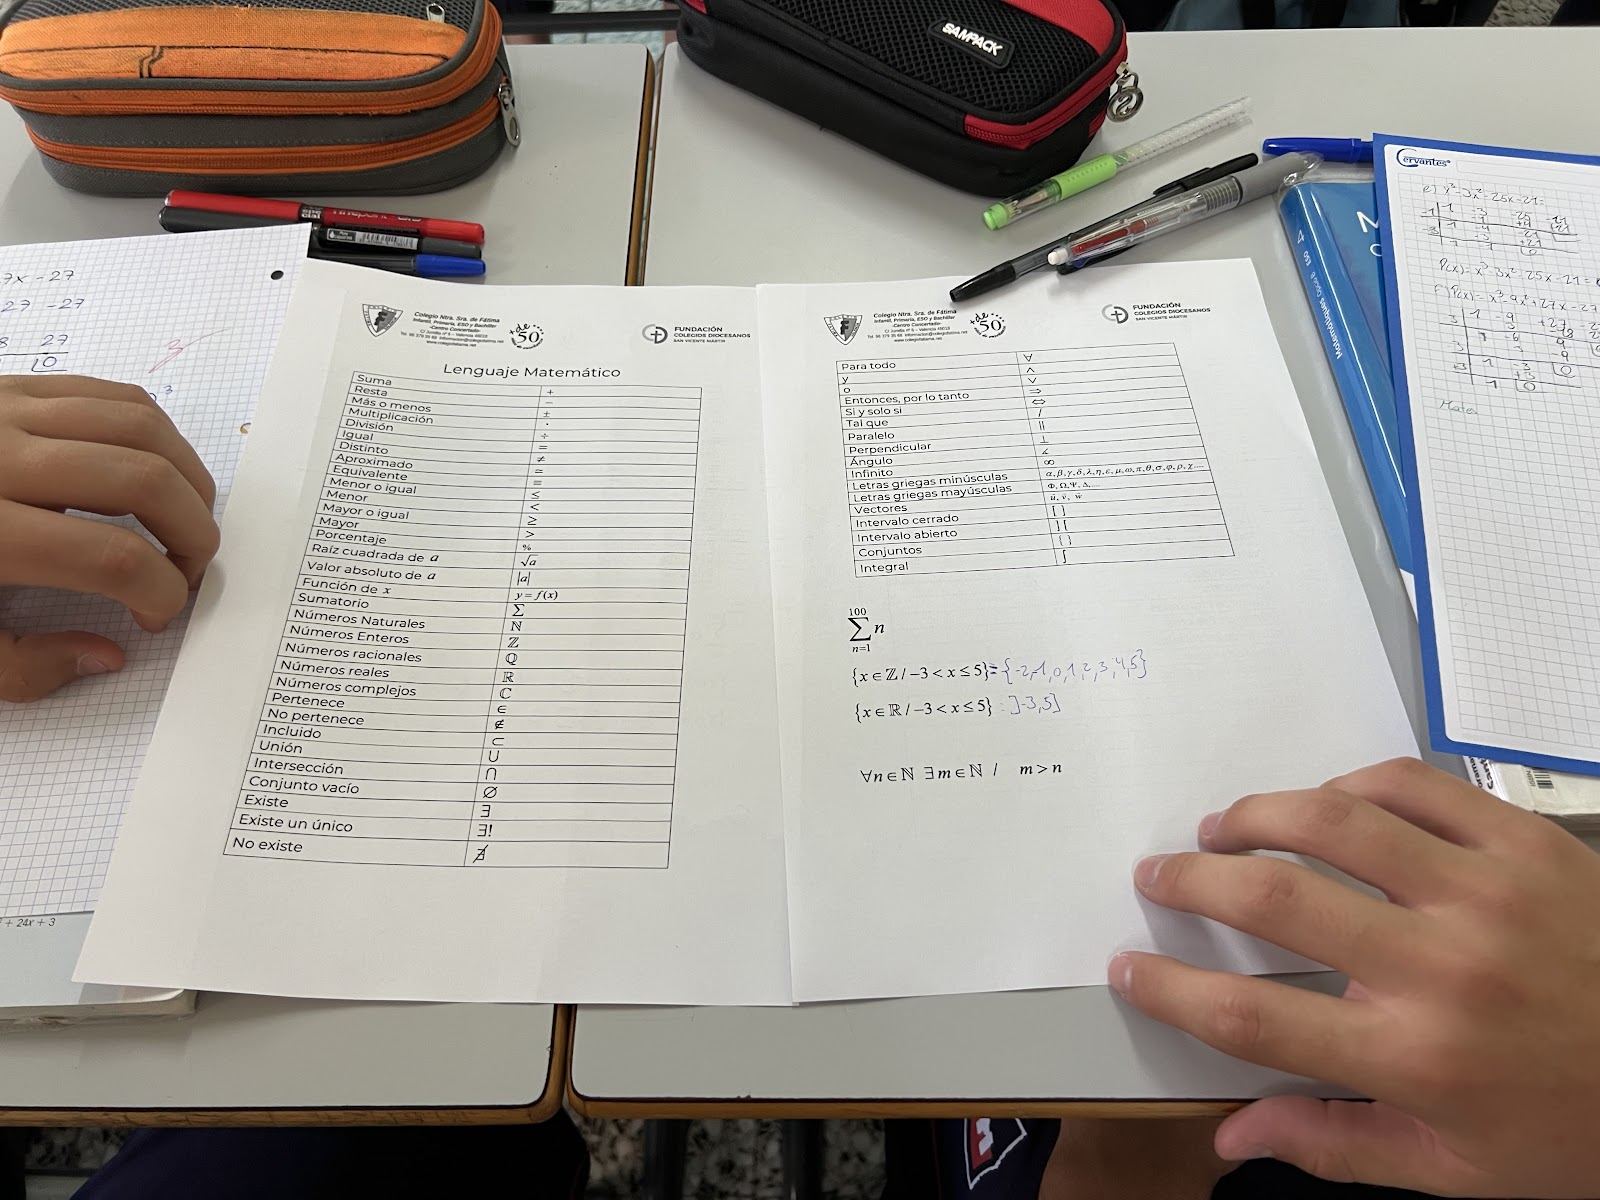 SAMPACK
Cervantes
7x - 27
27 - 27
27
0
3
+ 24x + 3
Colegio Ntra. Sra. de Fátima
Infantil, Primaria, ESO y Bachiller
-Centro Concertado-
+de
50
FUNDACIÓN
COLEGIOS DIOCESANOS
SAN VICENTE MÁRTIR
Lenguaje Matemático
Suma +
Resta −
Más o menos ±
Multiplicación ·
División ÷
Igual =
Distinto ≠
Aproximado ≃
Equivalente ≡
Menor o igual ≤
Menor <
Mayor o igual ≥
Mayor >
Porcentaje %
Raíz cuadrada de a √a
Valor absoluto de a |a|
Función de x y = f(x)
Sumatorio Σ
Números Naturales ℕ
Números Enteros ℤ
Números racionales ℚ
Números reales ℝ
Números complejos ℂ
Pertenece ∈
No pertenece ∉
Incluido ⊂
Unión ∪
Intersección ∩
Conjunto vacío ∅
Existe ∃
Existe un único ∃!
No existe ∄
Colegio Ntra. Sra. de Fátima
Infantil, Primaria, ESO y Bachiller
-Centro Concertado-
+de
50
FUNDACIÓN
COLEGIOS DIOCESANOS
SAN VICENTE MÁRTIR
Para todo ∀
y ∧
o ∨
Entonces, por lo tanto ⇒
Si y solo si ⇔
Tal que /
Paralelo ||
Perpendicular ⊥
Ángulo ∡
Infinito ∞
Letras griegas minúsculas α,β,γ,δ,λ,η,ε,μ,ω,π,θ,σ,φ,ρ,χ....
Letras griegas mayúsculas Φ,Ω,Ψ,Δ,...
Vectores u⃗, v⃗, w⃗
Intervalo cerrado [ ]
Intervalo abierto ] [
Conjuntos { }
Integral ∫
100
Σ n
n=1
{x ∈ ℤ / −3 < x ≤ 5} = {-2,-1,0,1,2,3,4,5}
{x ∈ ℝ / −3 < x ≤ 5} : ]-3,5]
∀n ∈ ℕ ∃m ∈ ℕ / m > n
4 ESO
Matemàtiques